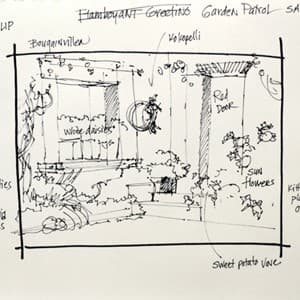 LIP
Flamboyant Greeting Garden Patrol SA
Bougainvillea
Kokopelli
Red
Door
white daisies
Sun
flowers
ties
Kit
pl
sweet potato vine